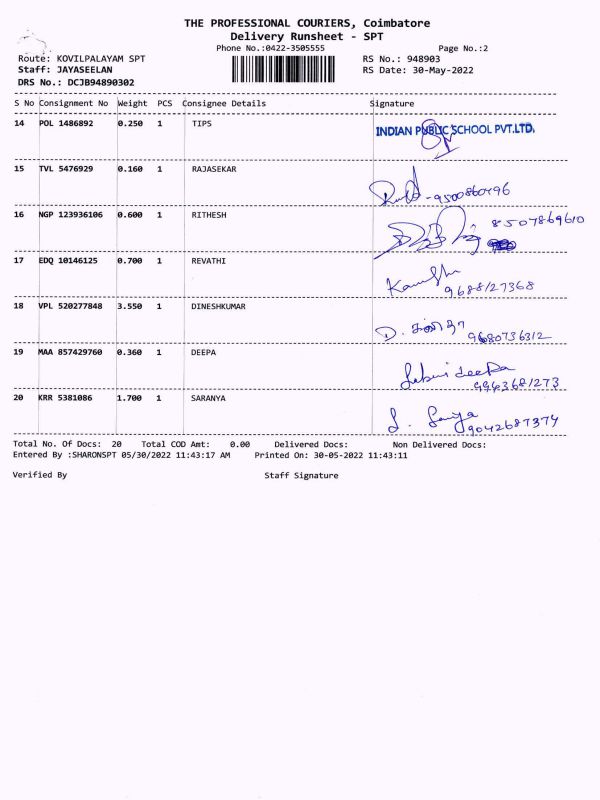 THE PROFESSIONAL COURIERS, Coimbatore
Delivery Runsheet - SPT
Phone No.:0422-3505555 Page No.:2
Route: KOVILPALAYAM SPT RS No.: 948903
Staff: JAYASEELAN RS Date: 30-May-2022
DRS No.: DCJB94890302
S No Consignment No Weight PCS Consignee Details Signature
14 POL 1486892 0.250 1 TIPS
INDIAN PUBLIC SCHOOL PVT.LTD.
15 TVL 5476929 0.160 1 RAJASEKAR
16 NGP 123936106 0.600 1 RITHESH
8507869610
17 EDQ 10146125 0.700 1 REVATHI
9688127368
18 VPL 520277848 3.550 1 DINESHKUMAR
9680736312
19 MAA 857429760 0.360 1 DEEPA
deepa
9943681273
20 KRR 5381086 1.700 1 SARANYA
9042687374
Total No. Of Docs: 20 Total COD Amt: 0.00 Delivered Docs: Non Delivered Docs:
Entered By :SHARONSPT 05/30/2022 11:43:17 AM Printed On: 30-05-2022 11:43:11
Verified By Staff Signature